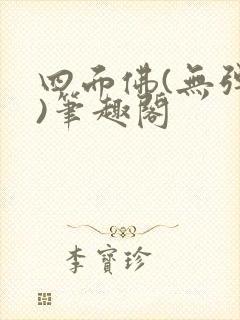 四而佛(無彈
)筆趣閣
李寶珍